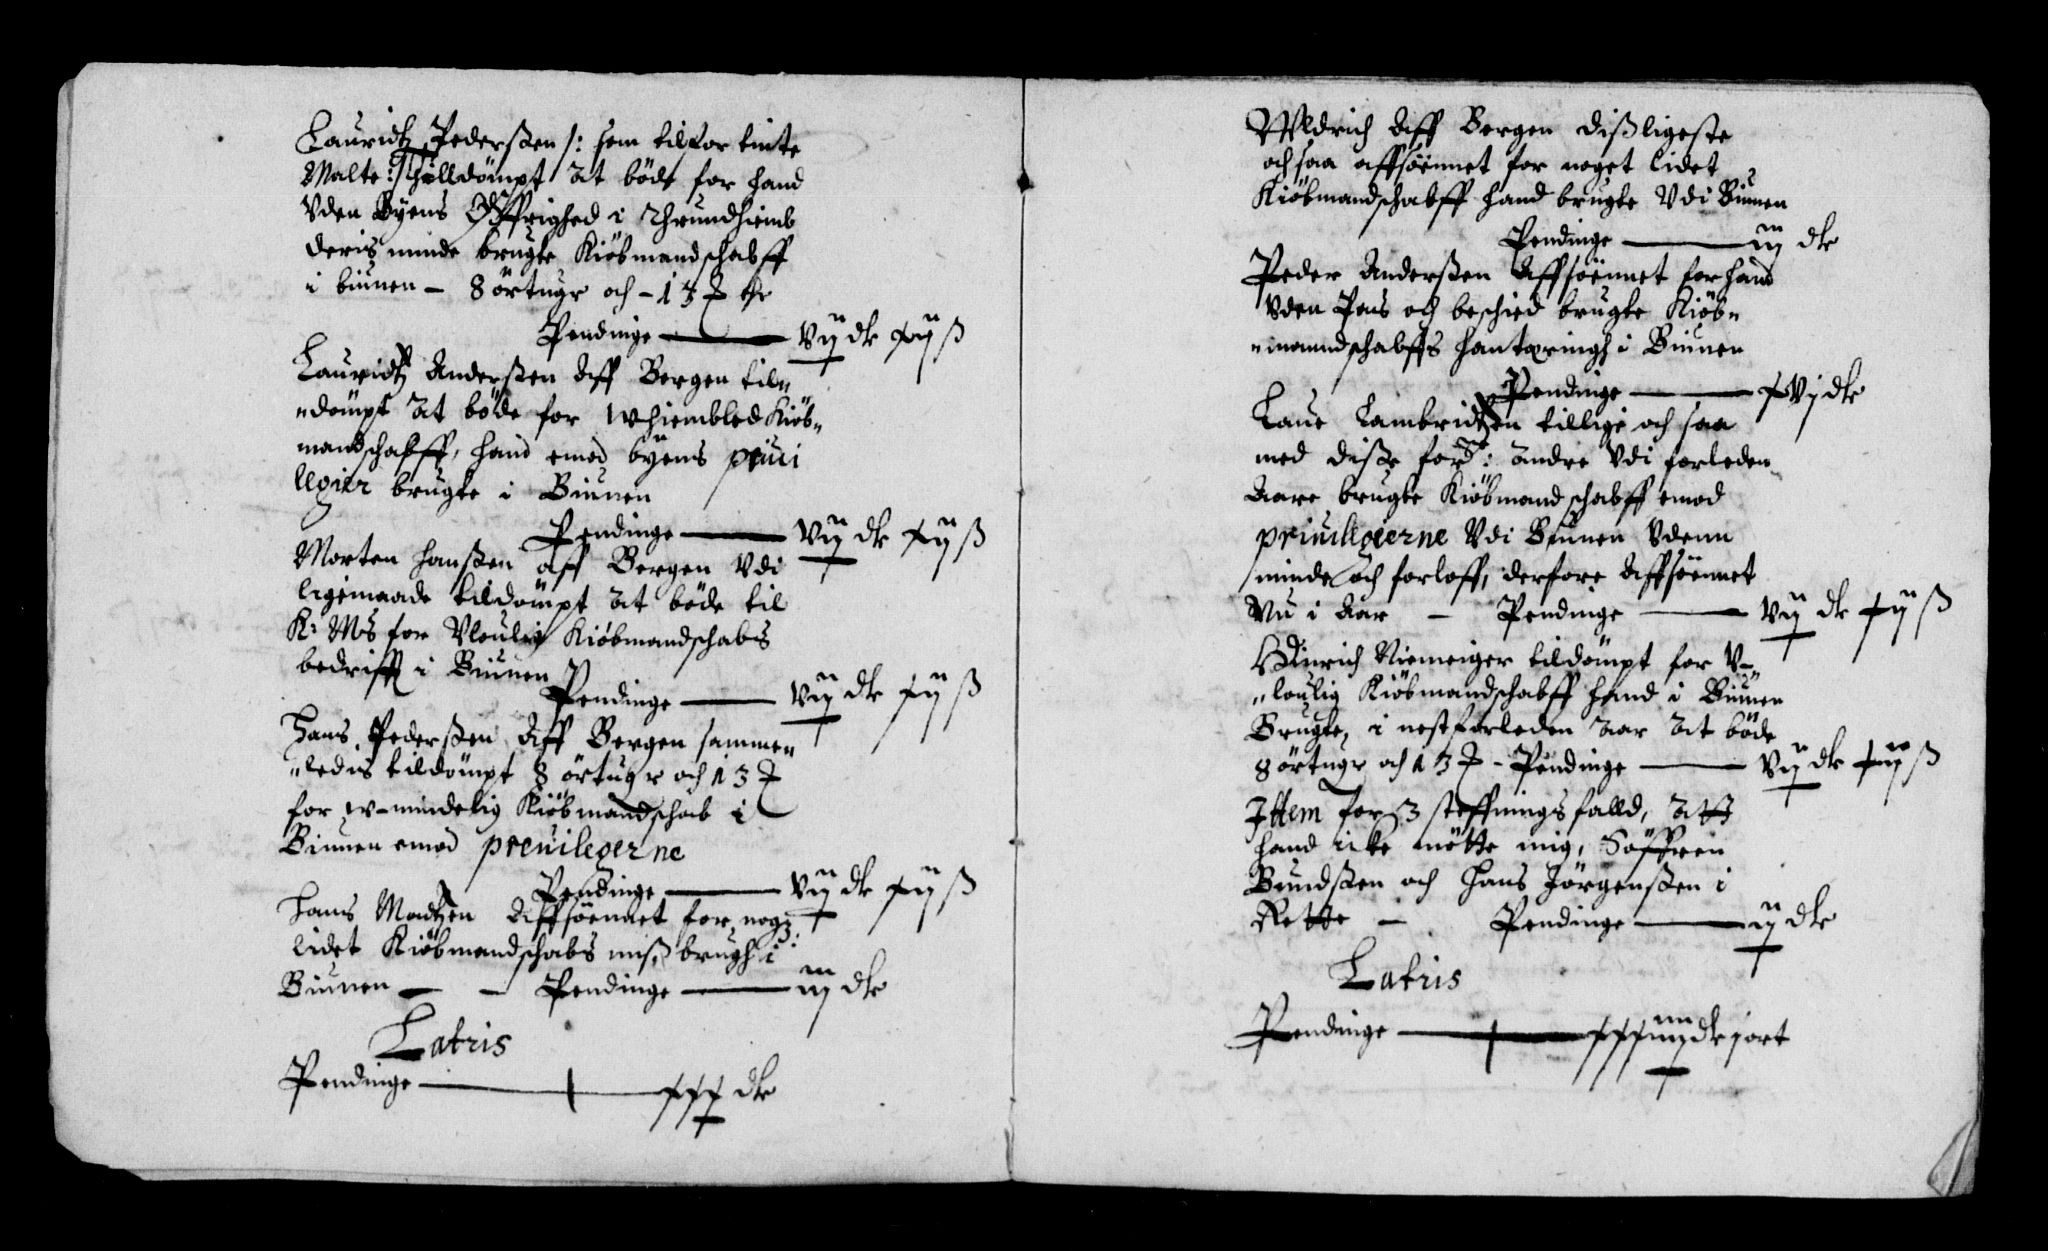 Lauridtz Pederßen /: som tilfor tinte
Malte :/ thilldömpt at böde for hand
vden Byens Öffrighed i Thrundhiemb
deris minde brugte Kiöbmandschabff
i biunen – 8 örtugr och – 13
Pendinge — vij dlr xij ß
Lauridtz Anderßen Aff Bergen til„
„dömpt at böde for whiembled Kiöb„
mandschabff, hand emod byens priui
llegier brugte i Biunen
Pendinge — vij dlr xij ß
Morten Hanßen aff Bergen vdi
ligemaade tildömpt at böde til
K: Mts for vloulig Kiöbmandschabs
bedrifft i Biunen
Pendinge — vij dlr xij ß
Hans Pederßen Aff Bergen sammen„
„ledis tildömpt 8 örtugr och 13
for w-mindelig Kiöbmandschab i
Biunen emod preuilegerne
Pendinge — vij dlr xij ß
Hans Madtzen Affsöennet for nog:
lidet Kiöbmandschabs miß,brugh i
Biunen – – Pendinge — iij dlr
Latris
Pendinge — xxx dlr
Wldrich Aff Bergen dißligeste
och saa affsöennet for noget lidet
Kiöbmandschabff hand brugte vdi Biunen
Pendinge — iij dlr
Peder Anderßen Affsöennet for hand
vden Pas och beschied brugte Kiöb„
„manndschabffs hanteringh i Biunen
Pendinge — xvj dlr
Laue Lambridtzen tillige och saa
med diße for: andre vdi forleden
Aare brugte Kiöbmandschabff emod
priuillgierne vdi Biunen vdenn
minde och forloff, derfore Affsöennet
nu i Aar – Pendinge — vij dlr xij ß
Hinrich Niemeiger tildömpt for v-„
„loulig Kiöbmandschabff hand i Biunen
Brugte, i nestforleden Aar at böde
8 örtugr och 13 – Pendinge — vij dlr xij ß
Ittem for 3 steffnings falld, att
hand icke mötte mig, Söffren
Bundßen och Hans Jörgenßen i
Rette – Pendinge — ij dlr
Latris
Pendinge — xxxiiij dlr j ort